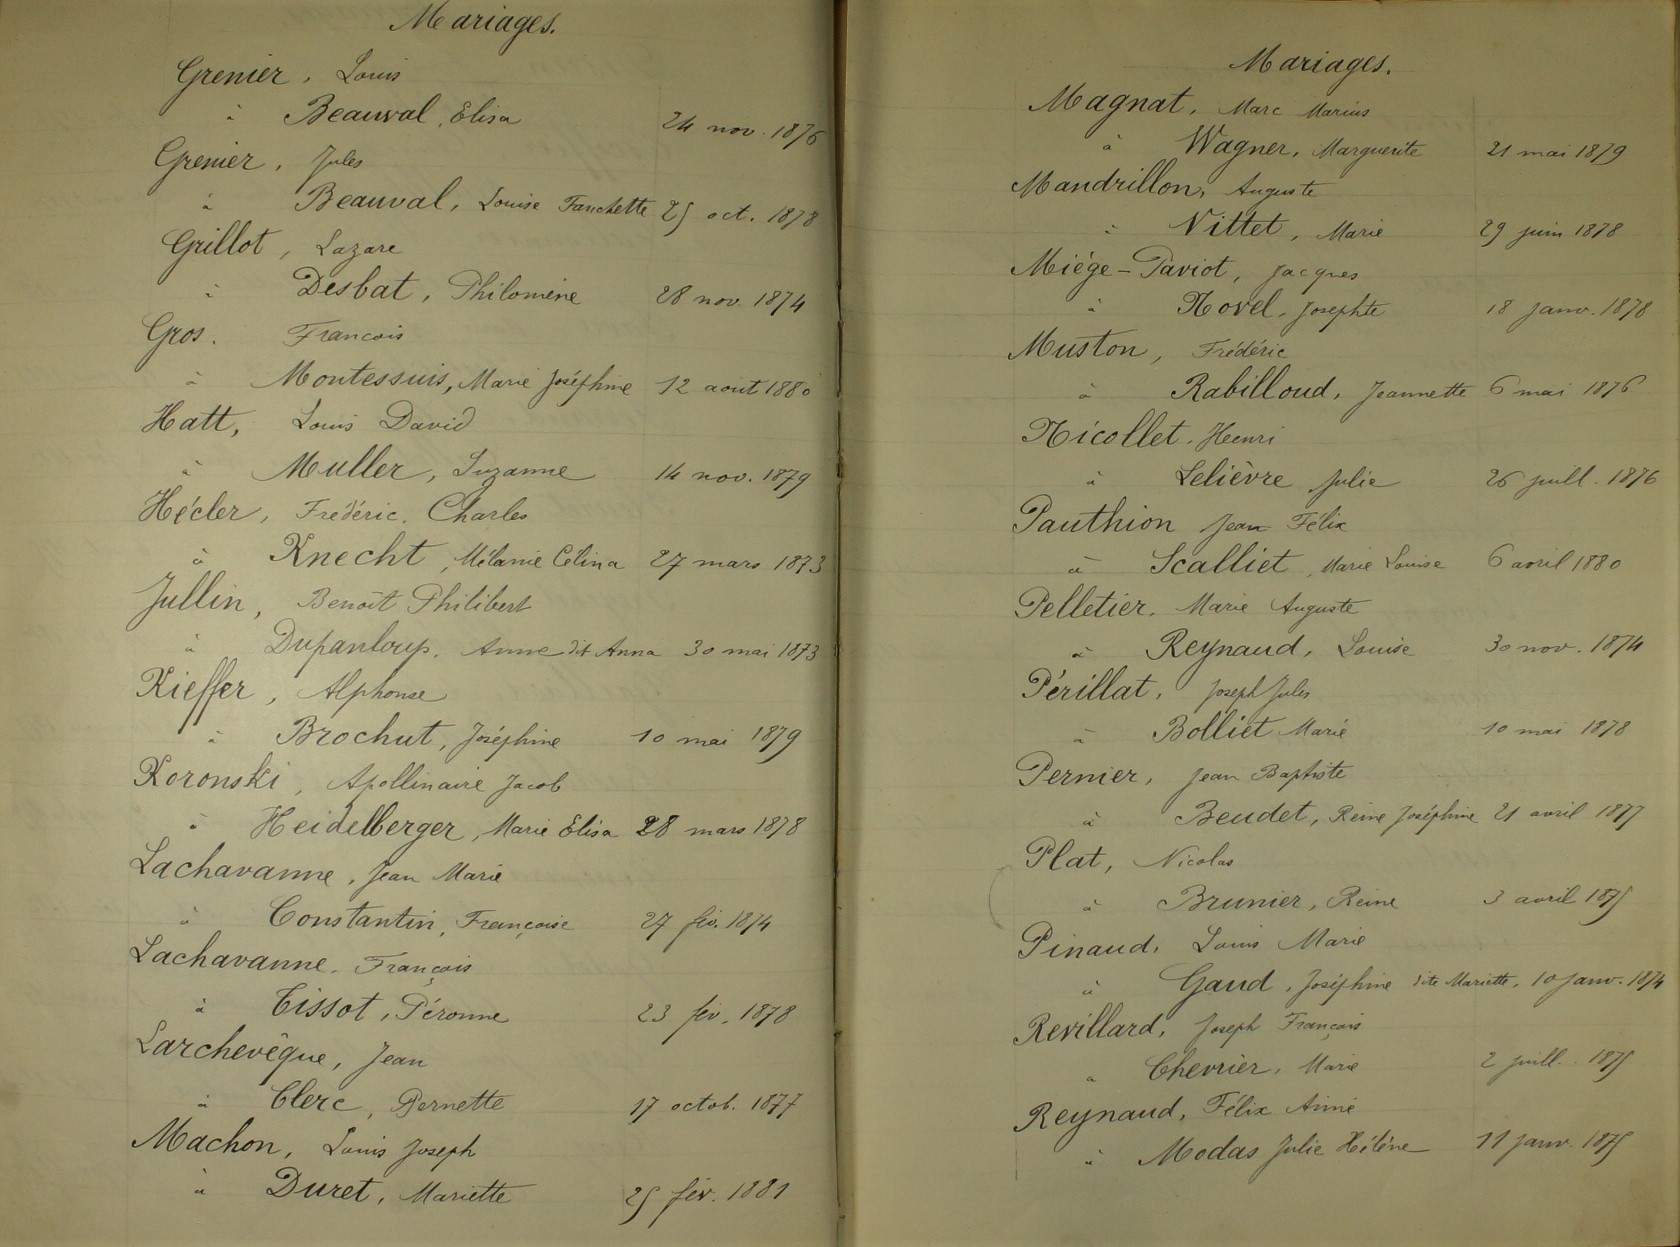 Mariages.
Grenier, Louis
à Beauval, Elisa 24 nov. 1876
Grenier, Jules
à Beauval, Louise Fanchette 25 oct. 1878
Grillot, Lazare
à Desbat, Philomène 28 nov. 1874
Gros. François
à Montessuis, Marie Joséphine 12 aout 1880
Hatt, Louis David
à Muller, Suzanne 14 nov. 1879
Hécler, Frédéric. Charles
à Knecht, Mélanie Célina 27 mars 1873
Jullin, Benoît Philibert
à Dupanloup. Anne dit Anna 30 mai 1873
Kieffer, Alphonse
à Brochut, Joséphine 10 mai 1879
Koronski, Apollinaire Jacob
à Heidelberger, Marie Elisa 28 mars 1878
Lachavanne, Jean Marie
à Constantin, Françoise 27 fév. 1874
Lachavanne. François
à Tissot, Péronne 23 fév. 1878
Larchevêque, Jean
à Clerc, Pernette 17 octob. 1877
Machon, Louis Joseph
à Duret, Mariette 25 fév. 1881
Mariages.
Magnat, Marc Marius
à Wagner, Marguerite 21 mai 1879
Mandrillon, Auguste
à Vittet, Marie 29 juin 1878
Miége-Paviot, Jacques
à Novel, Josephte 18 janv. 1878
Muston, Frédéric
à Rabilloud, Jeannette 6 mai 1876
Nicollet, Henri
à Lelièvre Julie 26 juill. 1876
Pauthion Jean Félix
à Scalliet, Marie Louise 6 avril 1880
Pelletier. Marie Auguste
à Reynaud, Louise 30 nov. 1874
Périllat, Joseph Jules
à Bolliet Marie 10 mai 1878
Pernier, Jean Baptiste
à Beudet, Reine Joséphine 21 avril 1877
Plat, Nicolas
à Brunier, Reine 3 avril 1875
Pinaud. Louis Marie
à Gaud, Joséphine dite Mariette, 10 janv. 1874
Revillard, Joseph François
à Chevrier, Marie 2 juill. 1875
Reynaud, Félix Aimé
à Modas Julie Hélène 11 janv. 1875